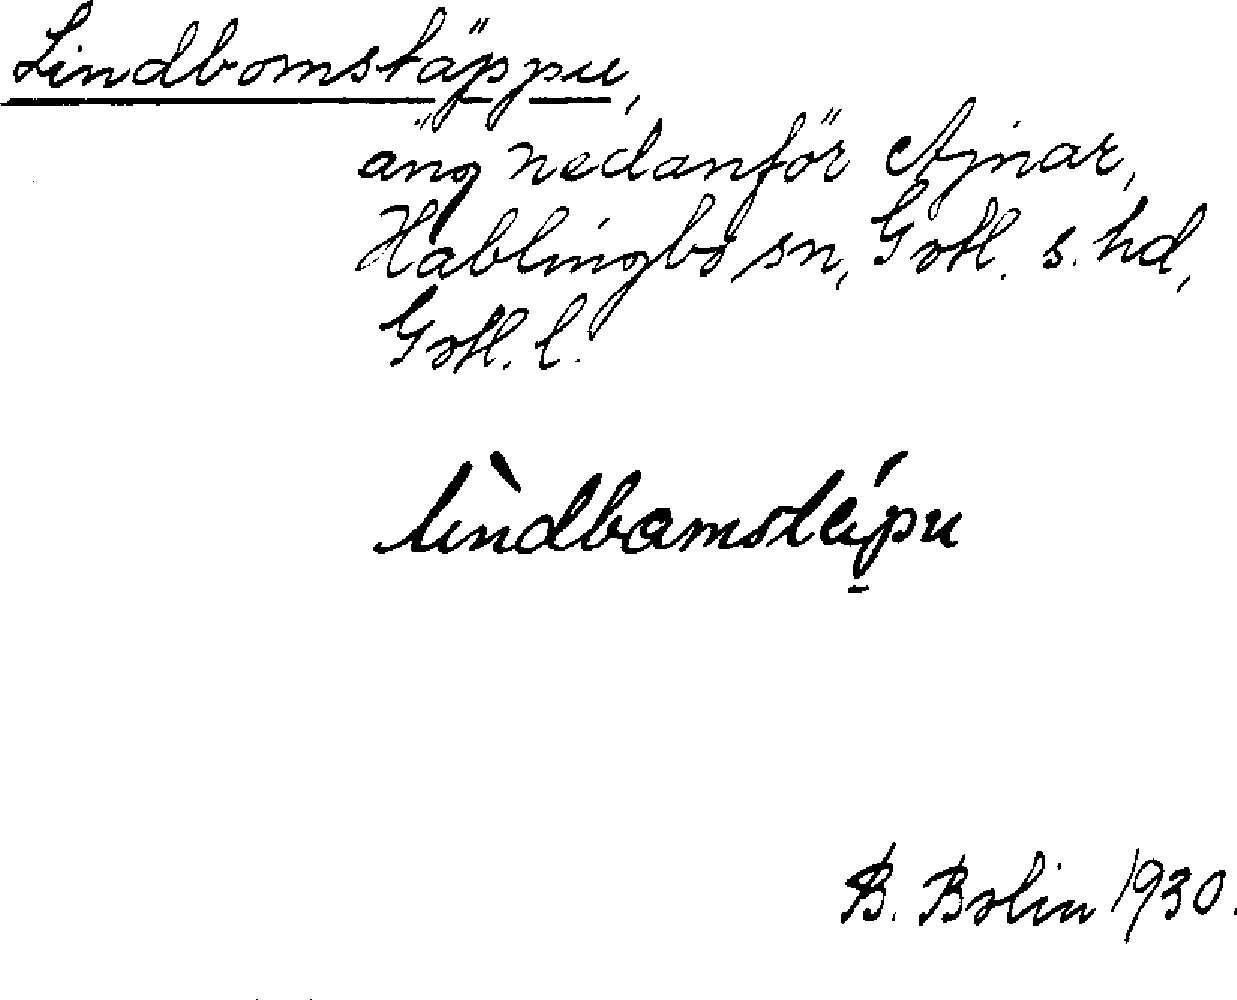 Lindbomstäppu,
äng nedanför Ajnar,
Hablingbo sn, Gotl. s. hd,
Gotl. l.
B. Bolin 1930.